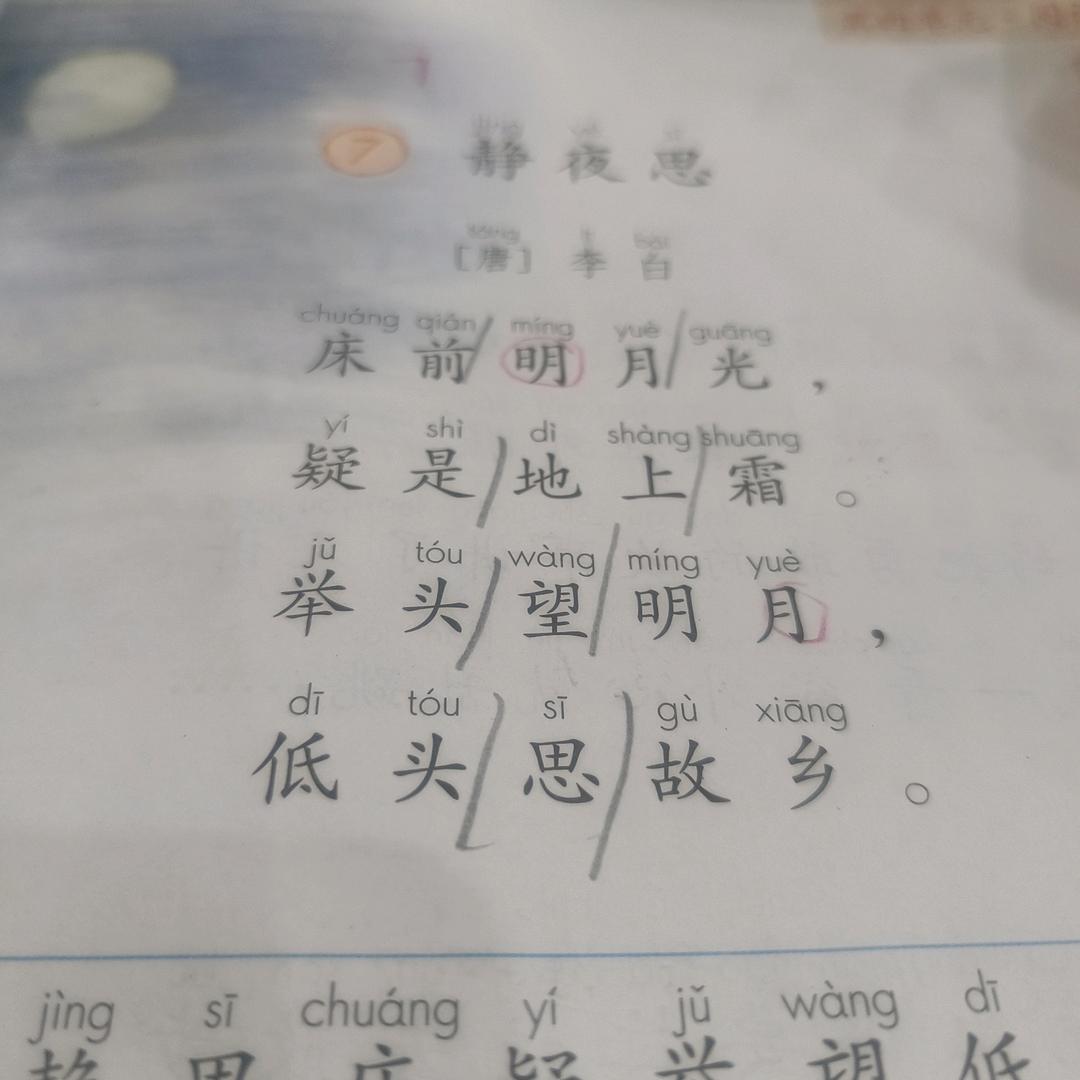 7 静夜思
[唐] 李白
chuáng qián míng yuè guāng
床前/明月/光，
yí shì dì shàng shuāng
疑是/地上/霜。
jǔ tóu wàng míng yuè
举头/望/明月，
dī tóu sī gù xiāng
低头/思/故乡。
jìng sī chuáng yí jǔ wàng dī
静思床疑举望低